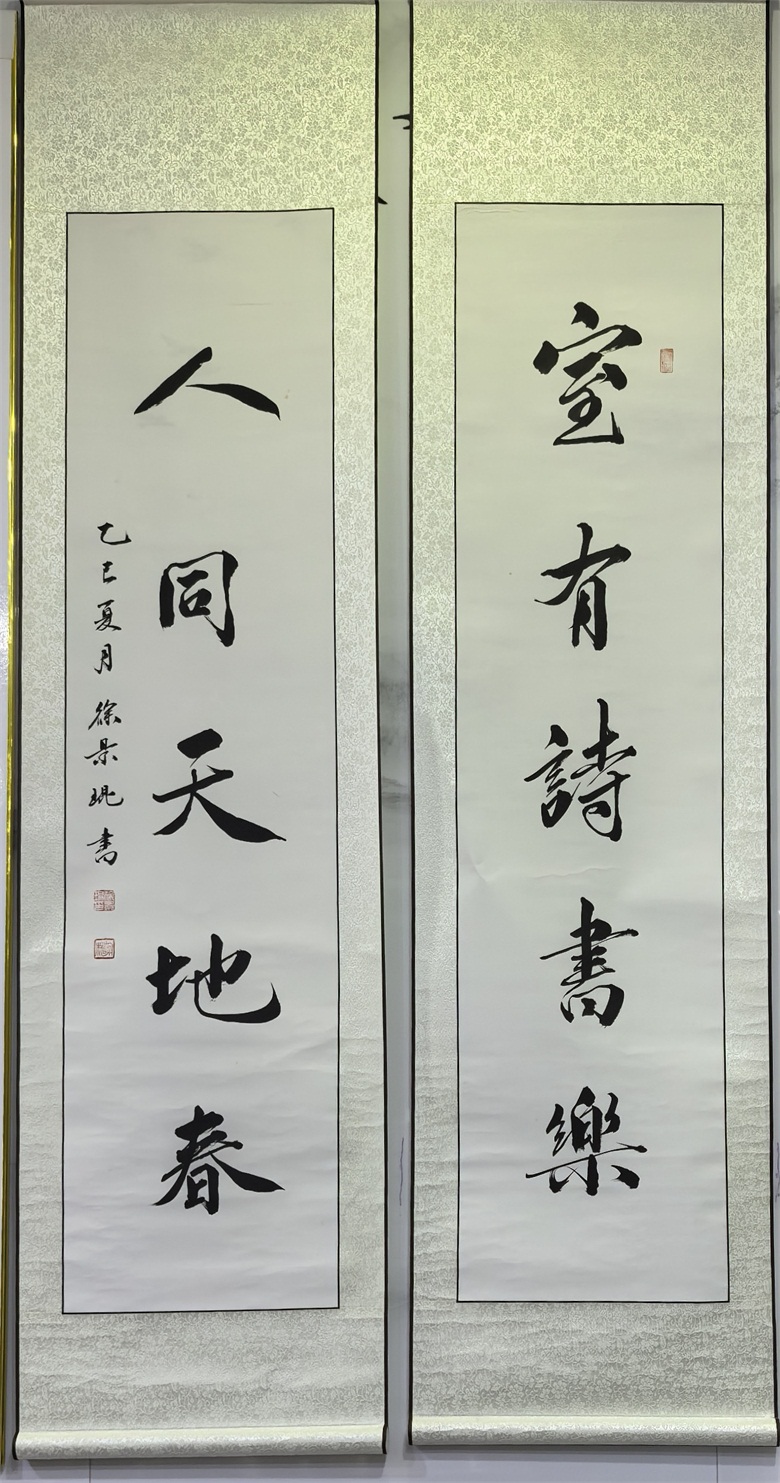 室有詩書樂
人同天地春
乙巳夏月徐景琨書